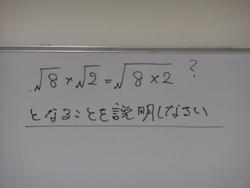 √8 × √2 = √8×2 ?
となることを説明しなさい